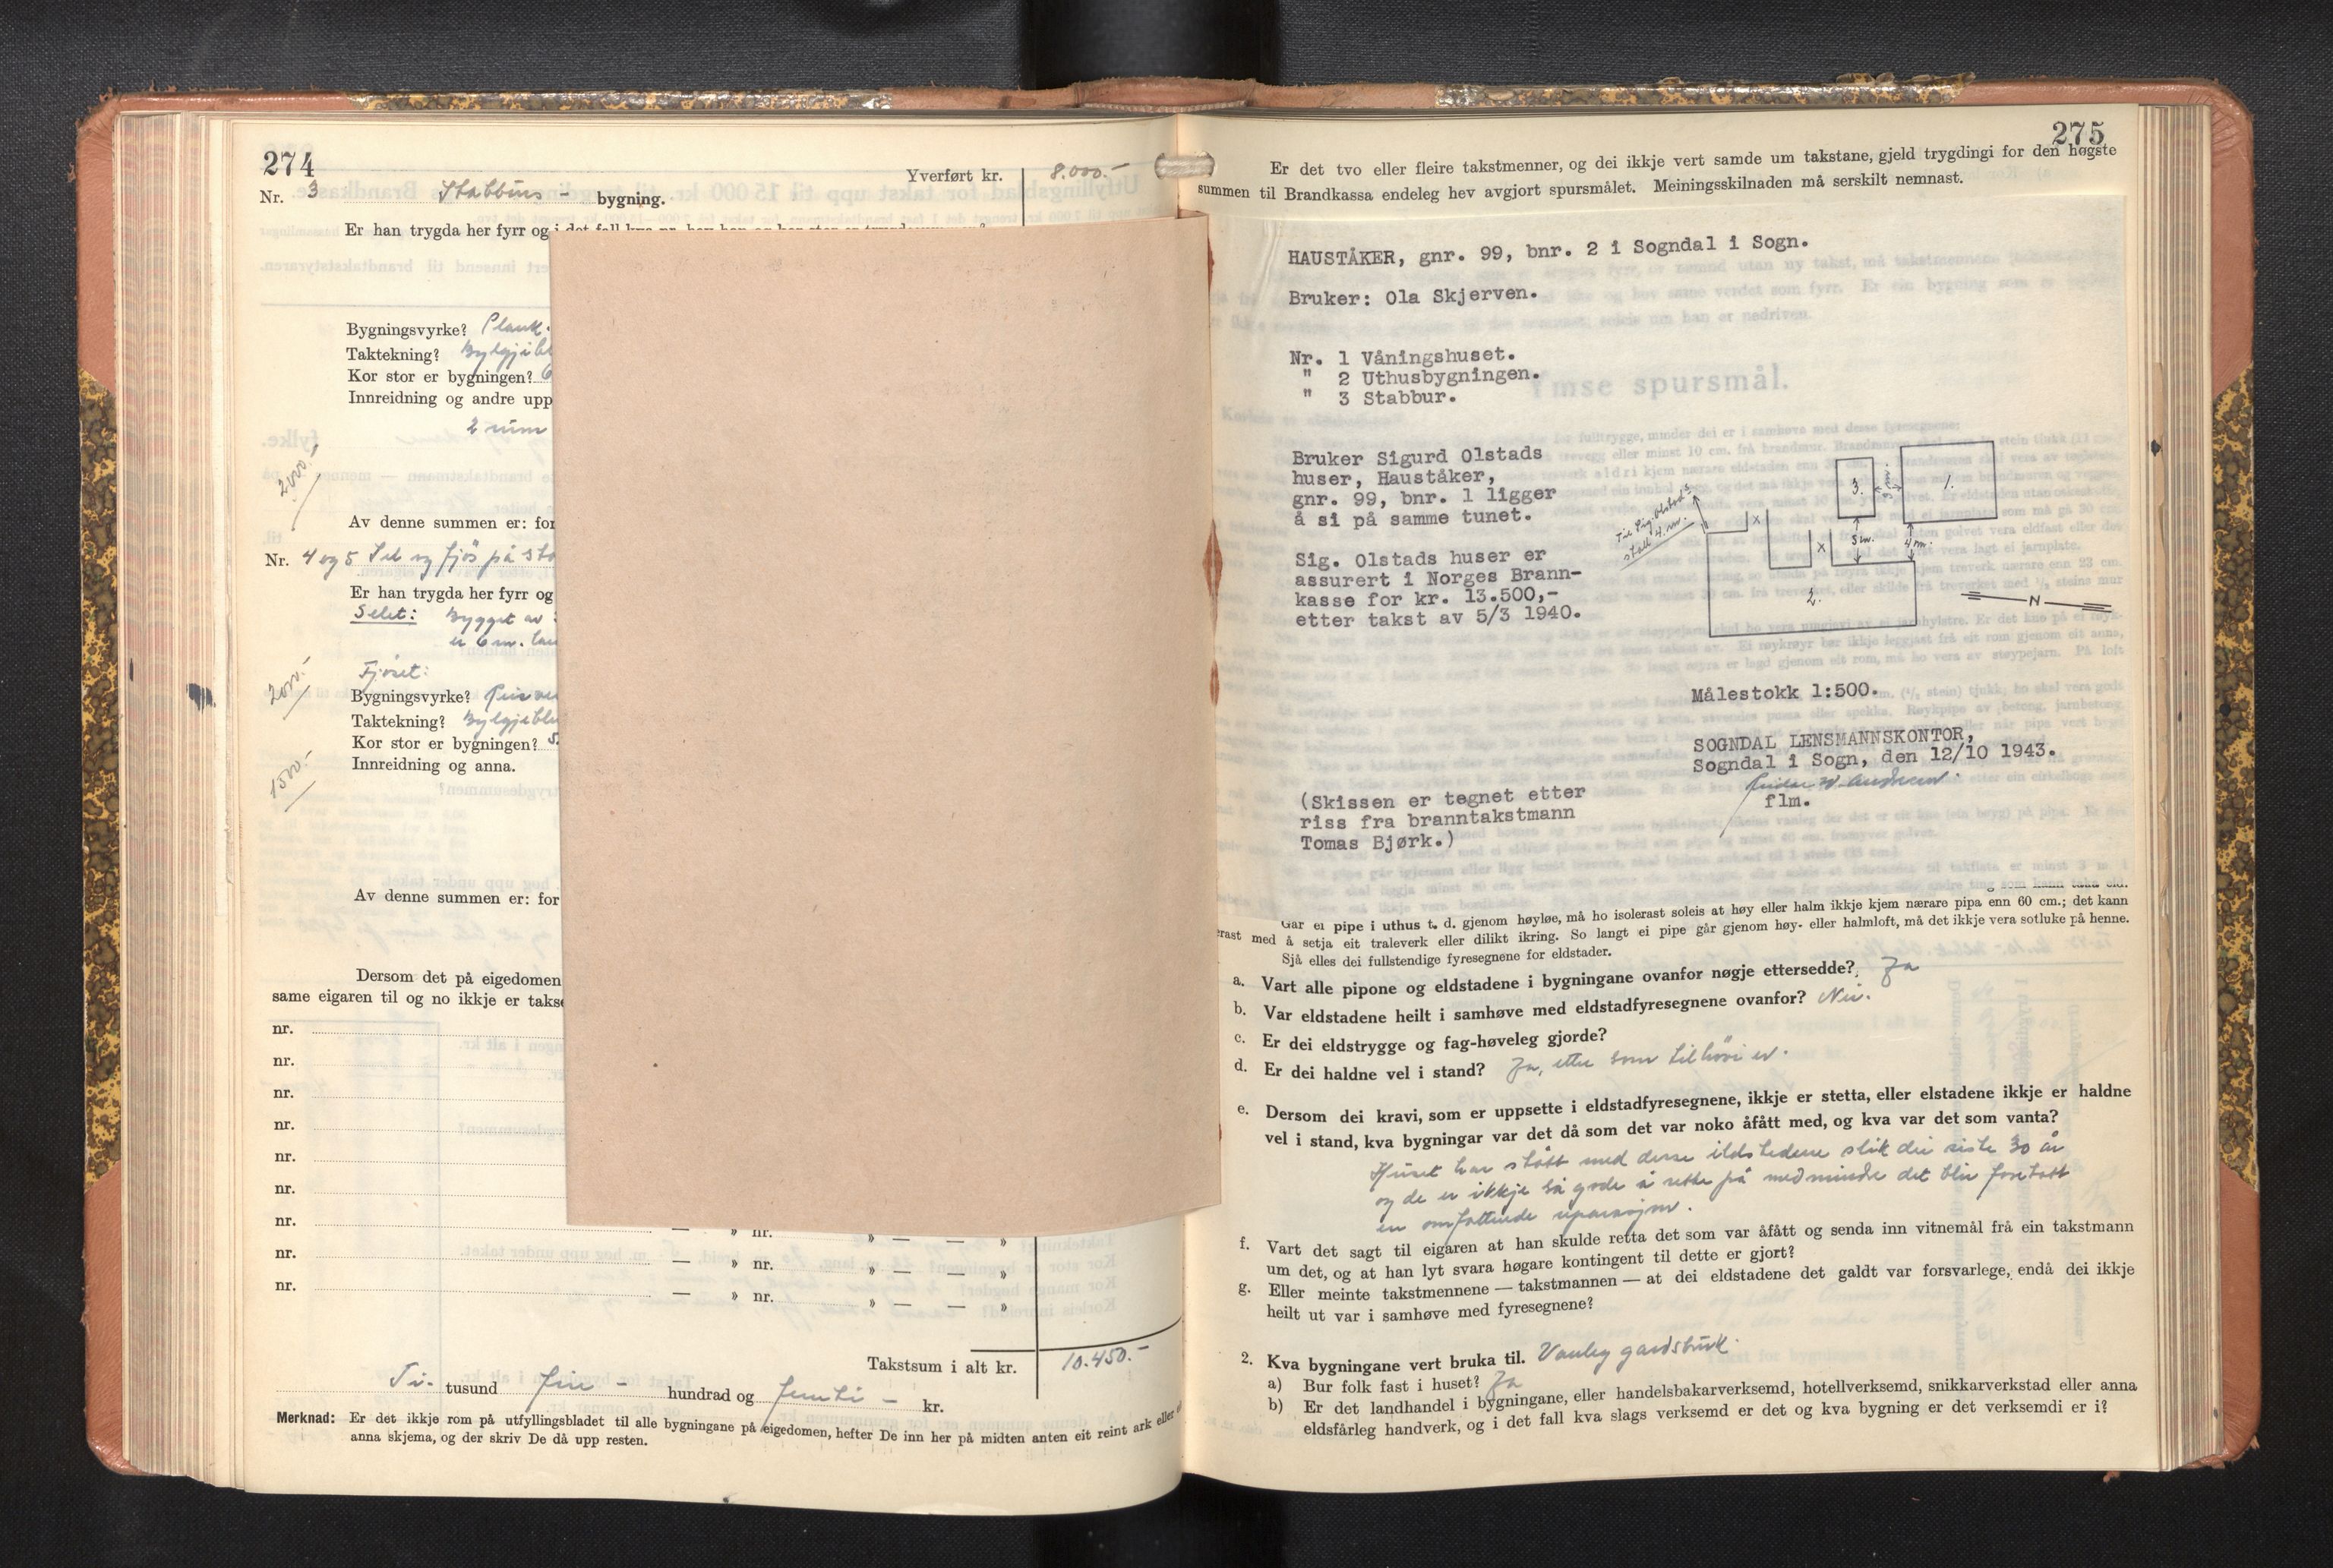 274
Yverført kr. 8.000.-
Nr. 3 Stabburs - bygning.
Er han trygda her fyrr og i det fall kva nr.
Bygningsvyrke? Plank.
Taktekning? Bylgjebl
Kor stor er bygningen? 6
Innreidning og andre upp
2 rum
2000.-
Av denne summen er: for
Nr. 4 og 5 Sel og fjøs på stø
Er han trygda her fyrr og
Selet: Bygget av
er 6 m. lan
2000.-
Fjøset:
Bygningsvyrke?
Taktekning? Bylgjeble
Kor stor er bygningen? 5.
Innreidning og anna.
1500.-
Av denne summen er: for
Dersom det på eigedomen
same eigaren til og no ikkje er takse
nr.
nr.
nr.
nr.
nr.
nr.
nr. — » nr. » — — »
nr. — » nr. » — — »
nr. — » nr. » — — »
Takstsum i alt kr. 10.450.-
Ti- tusund fire - hundrad og femti - kr.
Merknad: Er det ikkje rom på utfyllingsbladet til alle bygningane på eigedomen, hefter De inn her på midten anten eit reint ark eller
anna skjema, og der skriv De då upp resten.
275
Er det tvo eller fleire takstmenner, og dei ikkje vert samde um takstane, gjeld trygdingi for den høgste
summen til Brandkassa endeleg hev avgjort spursmålet. Meiningsskilnaden må serskilt nemnast.
HAUSTÅKER, gnr. 99, bnr. 2 i Sogndal i Sogn.
Bruker: Ola Skjerven.
Nr. 1 Våningshuset.
" 2 Uthusbygningen.
" 3 Stabbur.
Bruker Sigurd Olstads
huser, Hauståker,
gnr. 99, bnr. 1 ligger
å si på samme tunet.
Sig. Olstads huser er
assurert i Norges Brann-
kasse for kr. 13.500,-
etter takst av 5/3 1940.
Til Sig. Olstad's
stall 4 m.
3.
1.
x
x
5 m.
4 m.
2.
N
Målestokk 1:500.
SOGNDAL LENSMANNSKONTOR,
Sogndal i Sogn, den 12/10 1943.
flm.
(Skissen er tegnet etter
riss fra branntakstmann
Tomas Bjørk.)
som kann taka eld.
Gar ei pipe i uthus t. d. gjenom høyløe, må ho isolerast soleis at høy eller halm ikkje kjem nærare pipa enn 60 cm.; det kann
erast med å setja eit traleverk eller dilikt ikring. So langt ei pipe går gjenom høy- eller halmloft, må det ikkje vera sotluke på henne.
Sjå elles dei fullstendige fyresegnene for eldstader.
a. Vart alle pipone og eldstadene i bygningane ovanfor nøgje ettersedde? Ja
b. Var eldstadene heilt i samhøve med eldstadfyresegnene ovanfor? Nei.
c. Er dei eldstrygge og fag-høveleg gjorde?
d. Er dei haldne vel i stand? Ja, etter som tilhøvi er.
e. Dersom dei kravi, som er uppsette i eldstadfyresegnene, ikkje er stetta, eller elstadene ikkje er haldne
vel i stand, kva bygningar var det då som det var noko åfått med, og kva var det som vanta?
Huset har stått med desse ildstedene slik dei siste 30 år
og de er ikkje så gode å rette på medmindre det blir foretatt
en omfattende reparasjon.
f. Vart det sagt til eigaren at han skulde retta det som var åfått og senda inn vitnemål frå ein takstmann
um det, og at han lyt svara høgare kontingent til dette er gjort?
g. Eller meinte takstmennene — takstmannen — at dei eldstadene det galdt var forsvarlege, endå dei ikkje
heilt ut var i samhøve med fyresegnene?
2. Kva bygningane vert bruka til. Vanleg gardsbruk.
a) Bur folk fast i huset? Ja
b) Er det landhandel i bygningane, eller handelsbakarverksemd, hotellverksemd, snikkarverkstad eller anna
eldsfårleg handverk, og i det fall kva slags verksemd er det og kva bygning er det verksemdi er i?